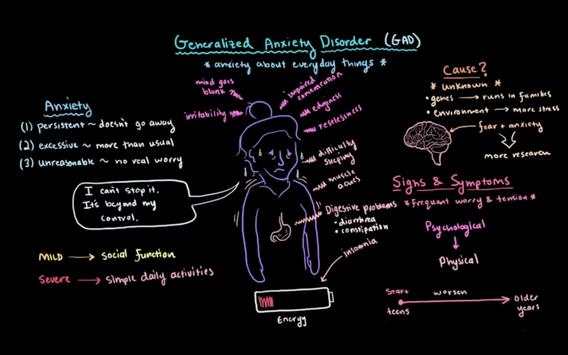 Generalized Anxiety Disorder (GAD)
* anxiety about everyday things *
Anxiety
(1) persistent ~ doesn't go away
(2) excessive ~ more than usual
(3) unreasonable ~ no real worry
I can't stop it.
It's beyond my
control.
MILD → social function
Severe → simple daily activities
mind goes
blank
irritability
impaired
concentration
edgyness
restlessness
difficulty
sleeping
muscle
aches
Digestive problems
• diarrhea
• constipation
insomnia
Energy
Cause?
* unknown *
• genes → runs in families
• environment → more stress
fear + anxiety
more research
Signs & Symptoms
* Frequent worry & tension *
Psychological
Physical
Start
teens
worsen
older
years